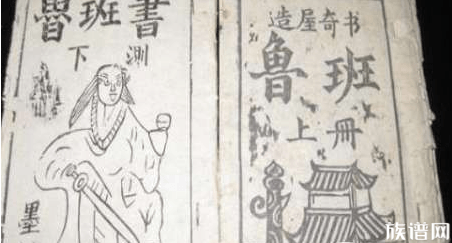 魯班書
下測
墨
造屋奇书
魯班
上冊
族谱网